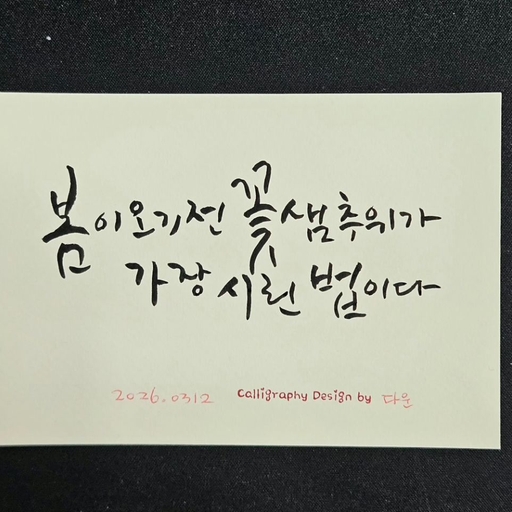 봄이오기전 꽃샘추위가
가장 시린 법이다
2026.0312 Calligraphy Design by 다운